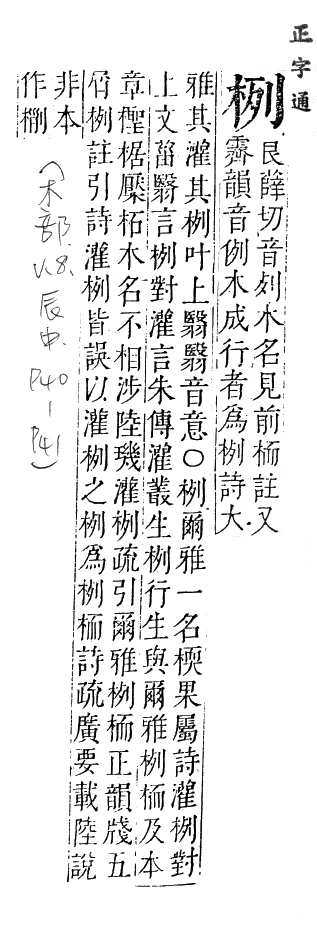 正字通
栵
良薛切音列木名見前栭註又
霽韻音例木成行者爲栵詩大
雅其灌其栵叶上翳翳音意○栵爾雅一名樉果屬詩灌栵對
上文菑翳言栵對灌言朱傳灌叢生栵行生與爾雅栵栭及本
章檉椐檿柘木名不相涉陸璣灌栵疏引爾雅栵栭正韻牋五
屑栵註引詩灌栵皆誤以灌栵之栵爲栵栭詩疏廣要載陸說
非本
作𣒖
(木部, V.8, 辰中, P40-P41)